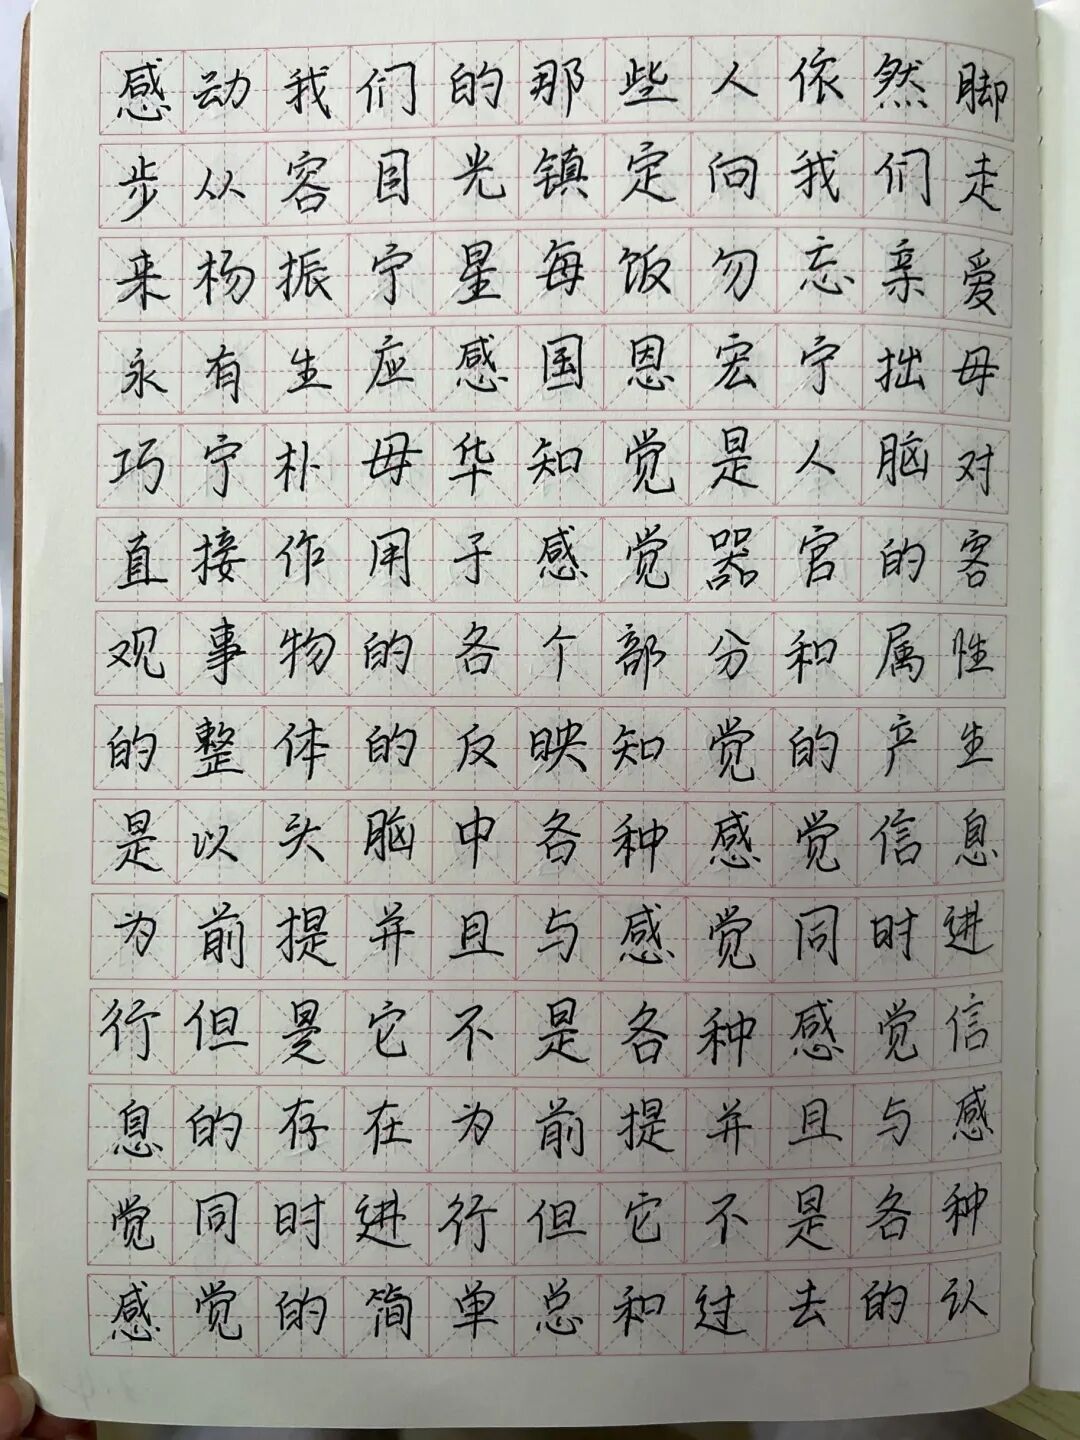 感动我们的那些人依然脚
步从容目光镇定向我们走
来杨振宁星每饭勿忘亲爱
永有生应感国恩宏宁拙毋
巧宁朴毋华知觉是人脑对
直接作用于感觉器官的客
观事物的各个部分和属性
的整体的反映知觉的产生
是以头脑中各种感觉信息
为前提并且与感觉同时进
行但是它不是各种感觉信
息的存在为前提并且与感
觉同时进行但它不是各种
感觉的简单总和过去的认